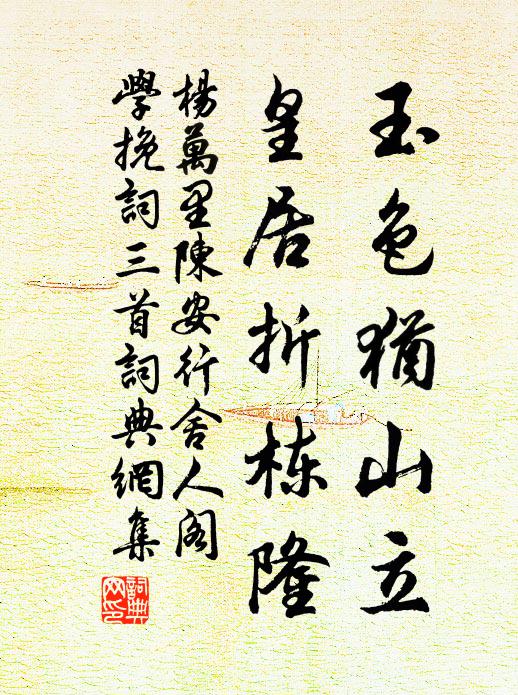 玉色犹山立
皇居折栋隆
楊萬里陳安行舍人阁
學挽詞三首詞典網集
詞典网印